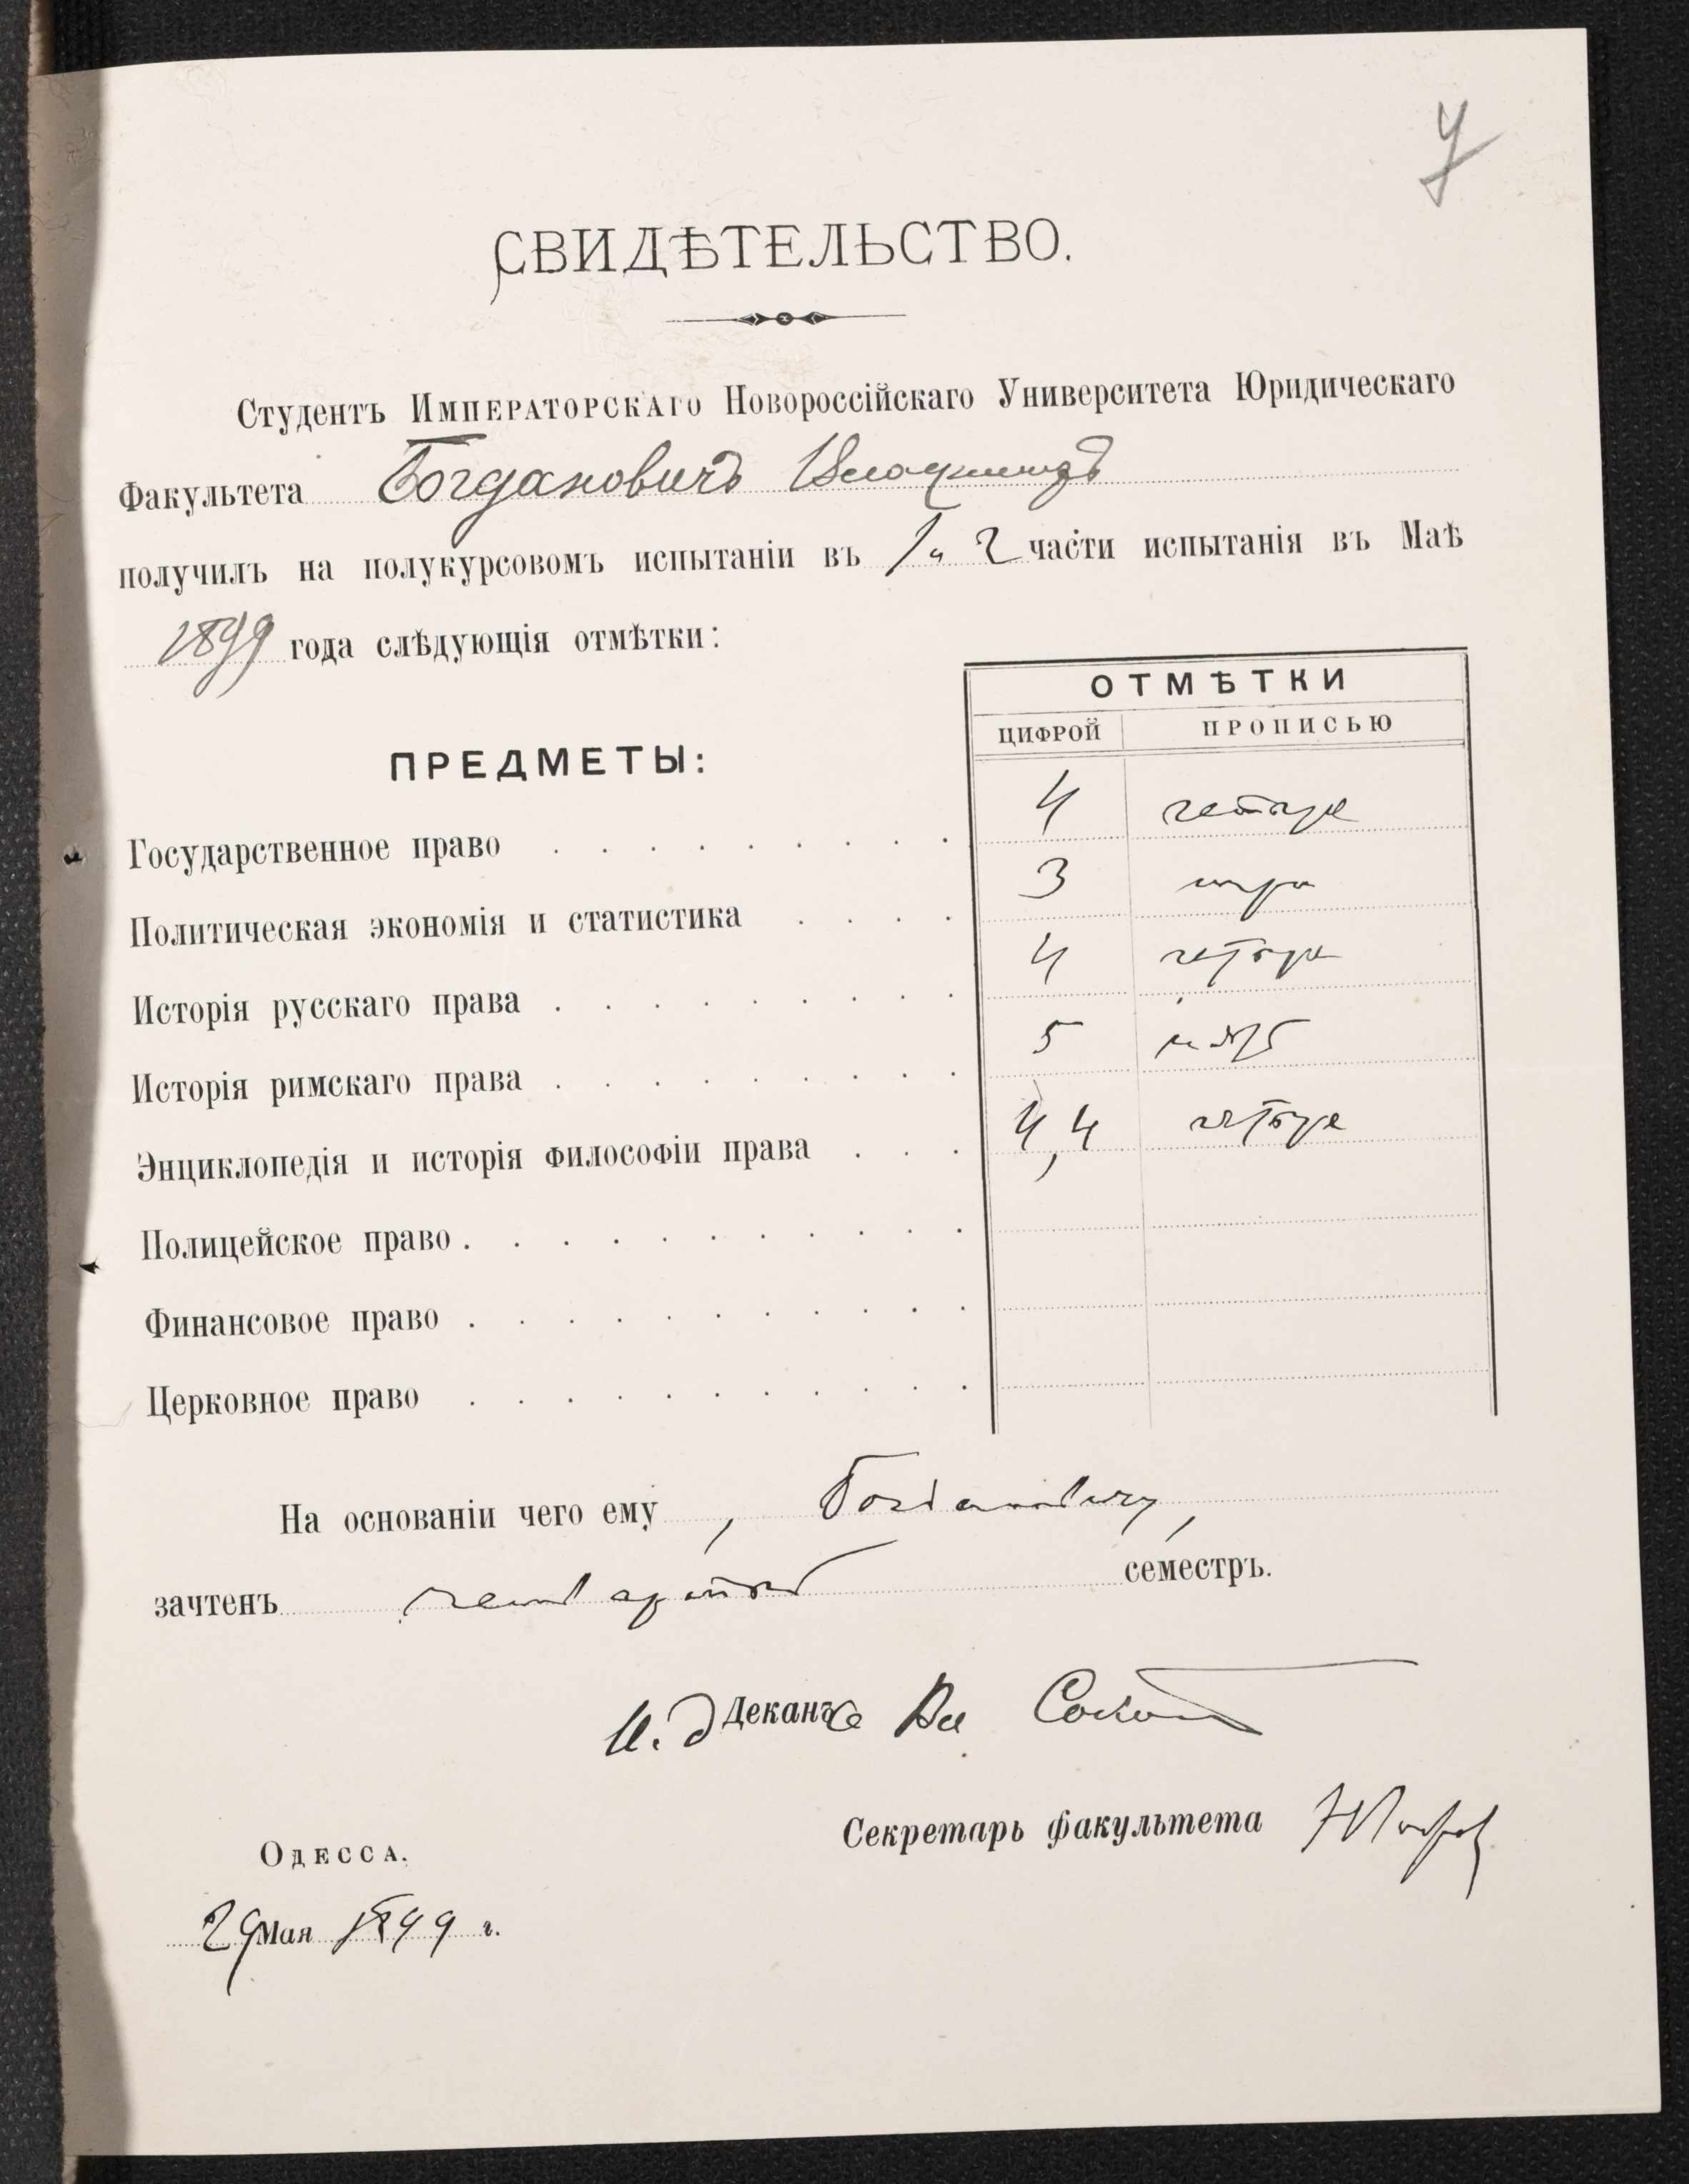 СВИДѢТЕЛЬСТВО.
Студентъ Императорскаго Новороссійскаго Университета Юридическаго
Факультета Богдановичъ
получилъ на полукурсовомъ испытаніи въ 1 и 2 части испытанія въ Маѣ
1899 года слѣдующія отмѣтки:
ОТМѢТКИ
ЦИФРОЙ ПРОПИСЬЮ
ПРЕДМЕТЫ:
Государственное право 4 четыре
Политическая экономія и статистика 3 три
Исторія русскаго права 4 четыре
Исторія римскаго права 5 пять
Энциклопедія и исторія философіи права 4, 4 четыре
Полицейское право
Финансовое право
Церковное право
На основаніи чего ему, Богдановичу,
зачтенъ четвертый семестръ.
И. д Декана Вл
Секретарь факультета
Одесса.
29 Мая 1899 г.